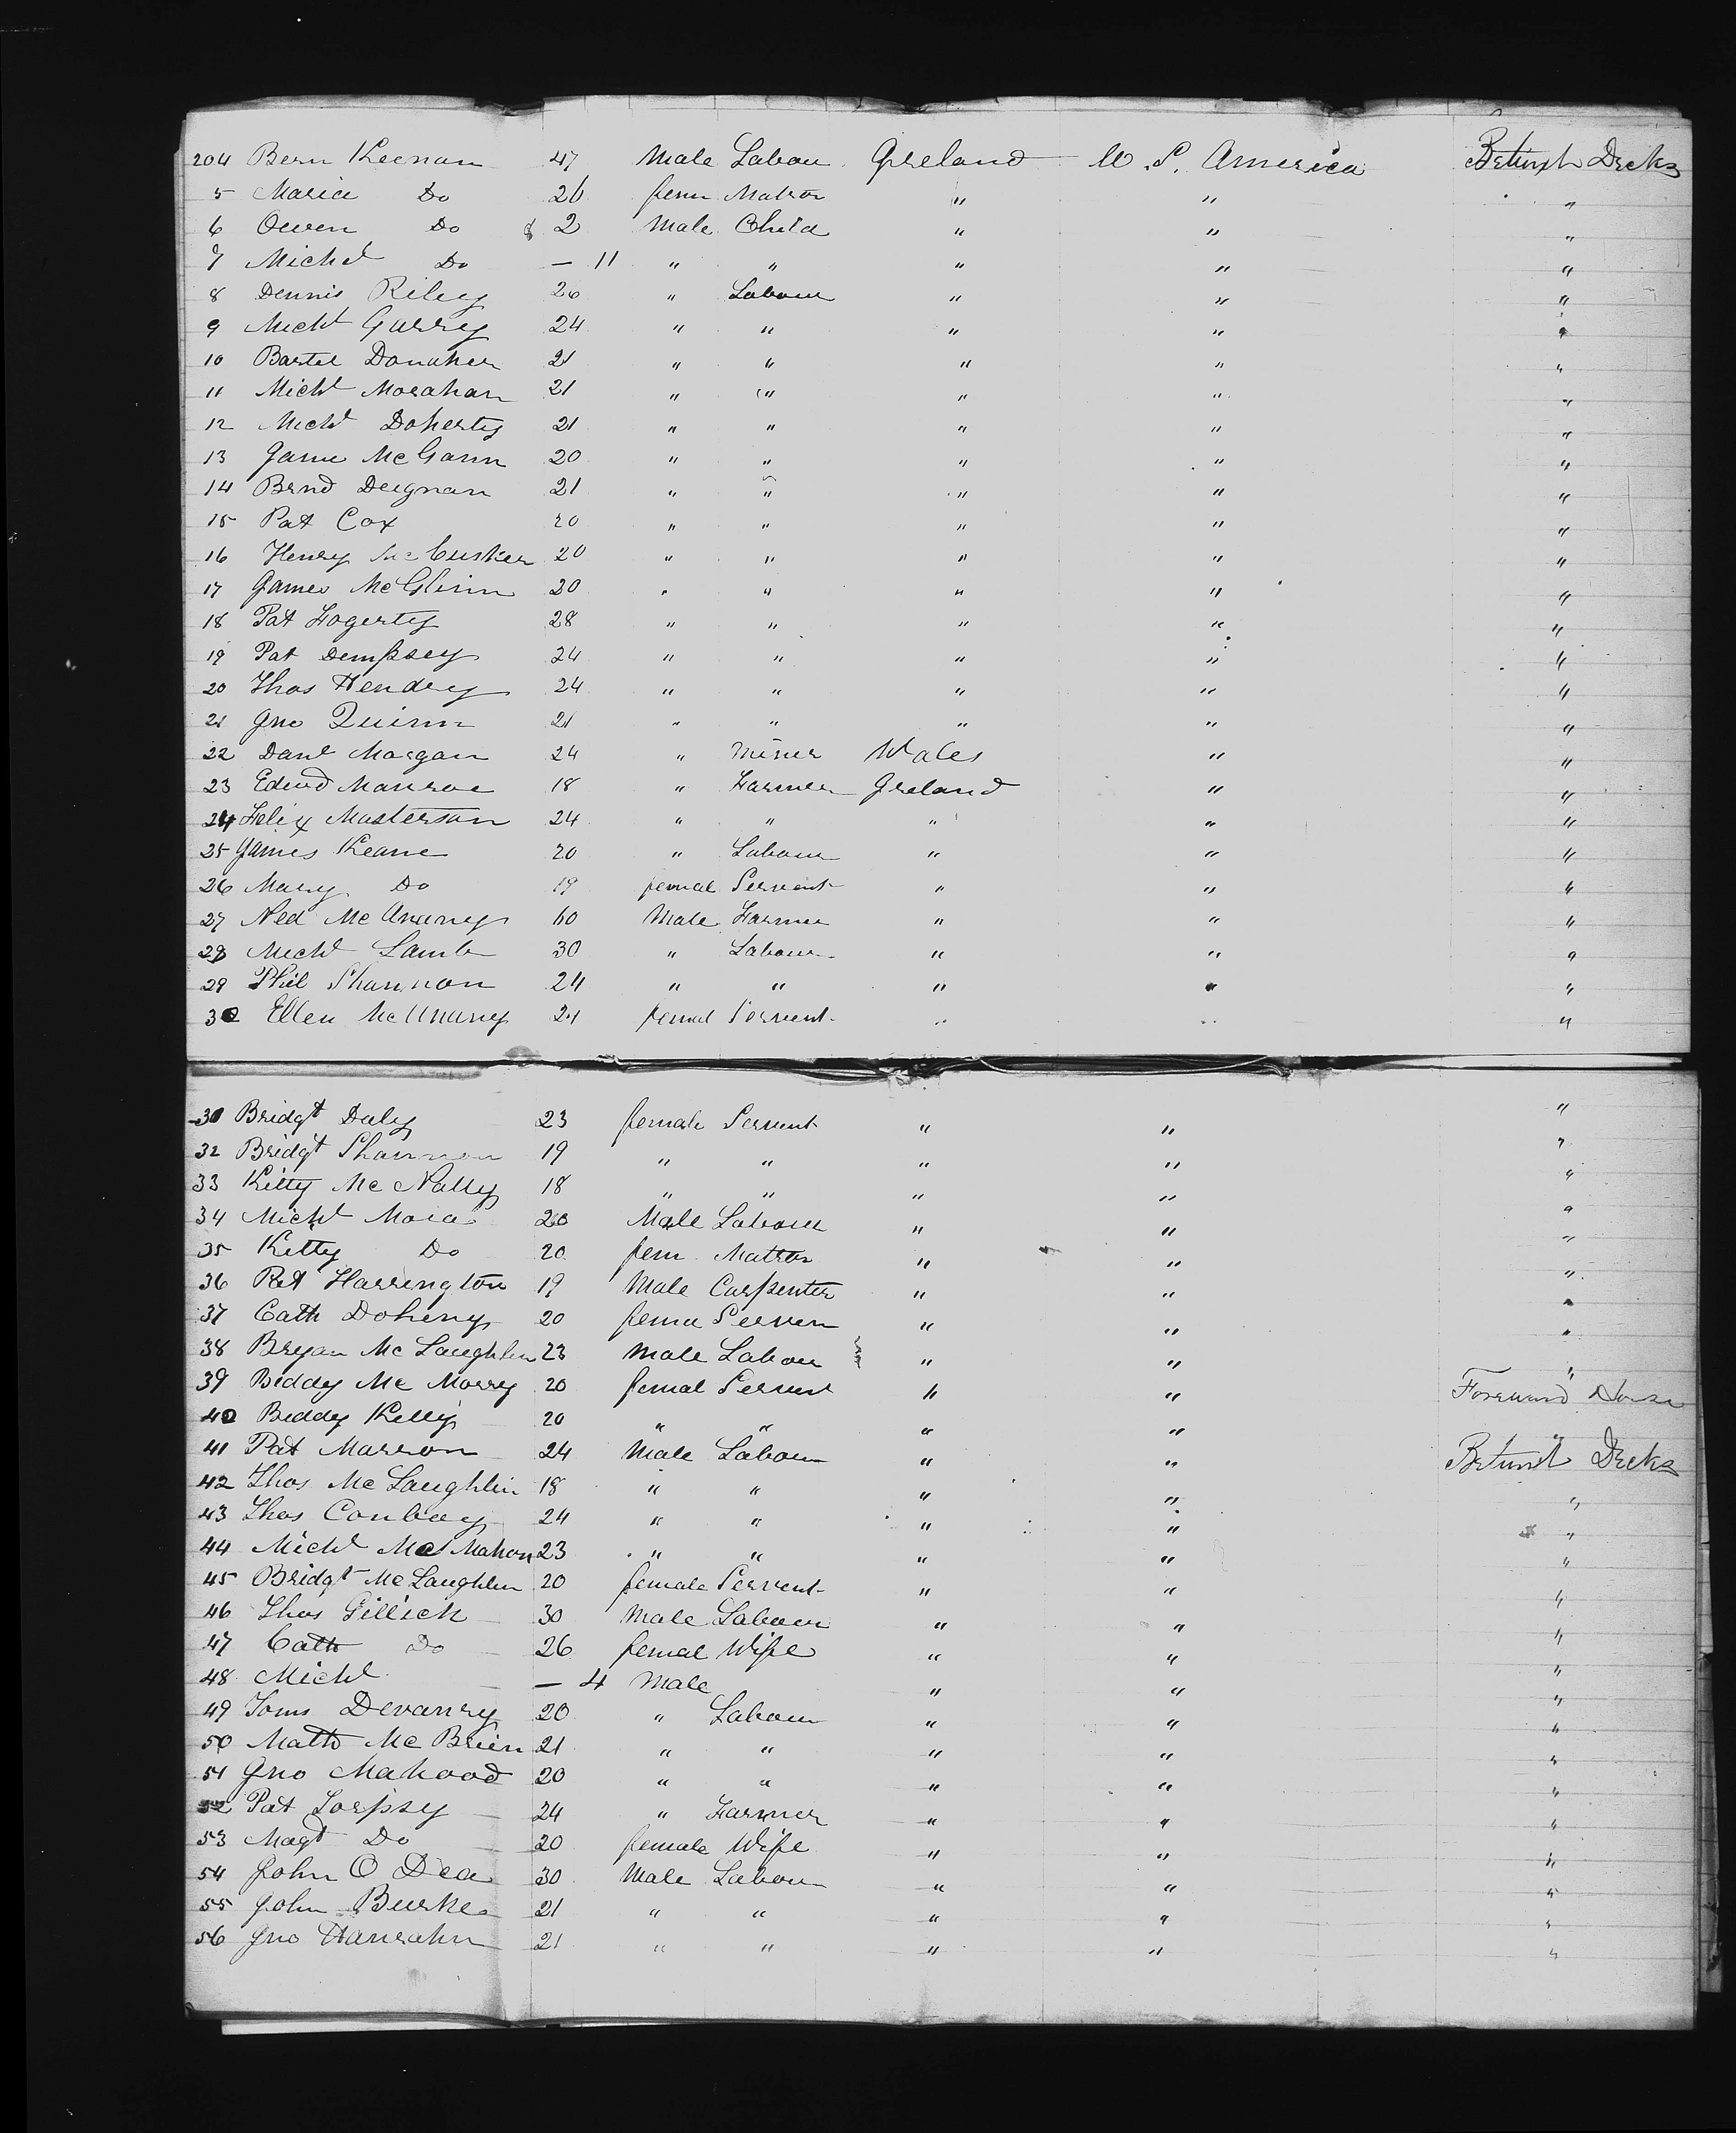 204 Bern Keenan 47 Male Labou Ireland U. S. America Betwixt Decks
5 Maria Do 26 fem Matron " " "
6 Owen Do 2 Male Child " " "
7 Michl Do — 11 " " " " "
8 Dennis Riley 26 " Labour " " "
9 Michl Garry 24 " " " " "
10 Bartle Donaher 21 " " " " "
11 Michl Morahan 21 " " " " "
12 Michl Doherty 21 " " " " "
13 Jame McGann 20 " " " " "
14 Brnd Deignan 21 " " " " "
15 Pat Cox 20 " " " " "
16 Henry McCusker 20 " " " " "
17 James McGlinn 20 " " " " "
18 Pat Fogerty 28 " " " " "
19 Pat Dempsey 24 " " " " "
20 Thos Hendry 24 " " " " "
21 Jno Quinn 21 " " " " "
22 Danl Morgan 24 " Miner Wales " "
23 Edwd Manroe 18 " Farmer Ireland " "
24 Felix Masterson 24 " " " " "
25 James Keane 20 " Labour " " "
26 Mary Do 19 femal Servent " " "
27 Ned McAnany 60 Male Farmer " " "
28 Michl Lamb 30 " Labour " " "
29 Phil Shannon 24 " " " " "
30 Ellen McAnany 24 femal Servent " " "
30 Bridgt Daly 23 female Servent " " "
32 Bridgt Shannon 19 " " " " "
33 Kitty McNally 18 " " " " "
34 Michl Mora 20 Male Labour " " "
35 Kitty Do 20 fem Matron " " "
36 Pat Harrington 19 Male Carpenter " " "
37 Cath Doheny 20 fema Serven " " "
38 Bryan McLaughlin 23 Male Labou " " "
39 Biddy McMorry 20 femal Servent " " Foreward House
40 Biddy Kelly 20 " " " " "
41 Pat Marron 24 Male Labour " " Betwixt Decks
42 Thos McLaughlin 18 " " " " "
43 Thos Conboy 24 " " " " "
44 Michl McMahon 23 " " " " "
45 Bridgt McLaughlin 20 female Servent " " "
46 Thos Gillick 30 Male Labour " " "
47 Cath Do 26 femal Wife " " "
48 Michl — 4 Male " " "
49 Devanry 20 " Labour " " "
50 Mattw McBrien 21 " " " " "
51 Jno Mahood 20 " " " " "
52 Pat Torpsy 24 " Farmer " " "
53 Magt Do 20 female Wife " " "
54 John O Dea 30 Male Labour " " "
55 John Burke 21 " " " " "
56 Jno Hanrahn 21 " " " " "